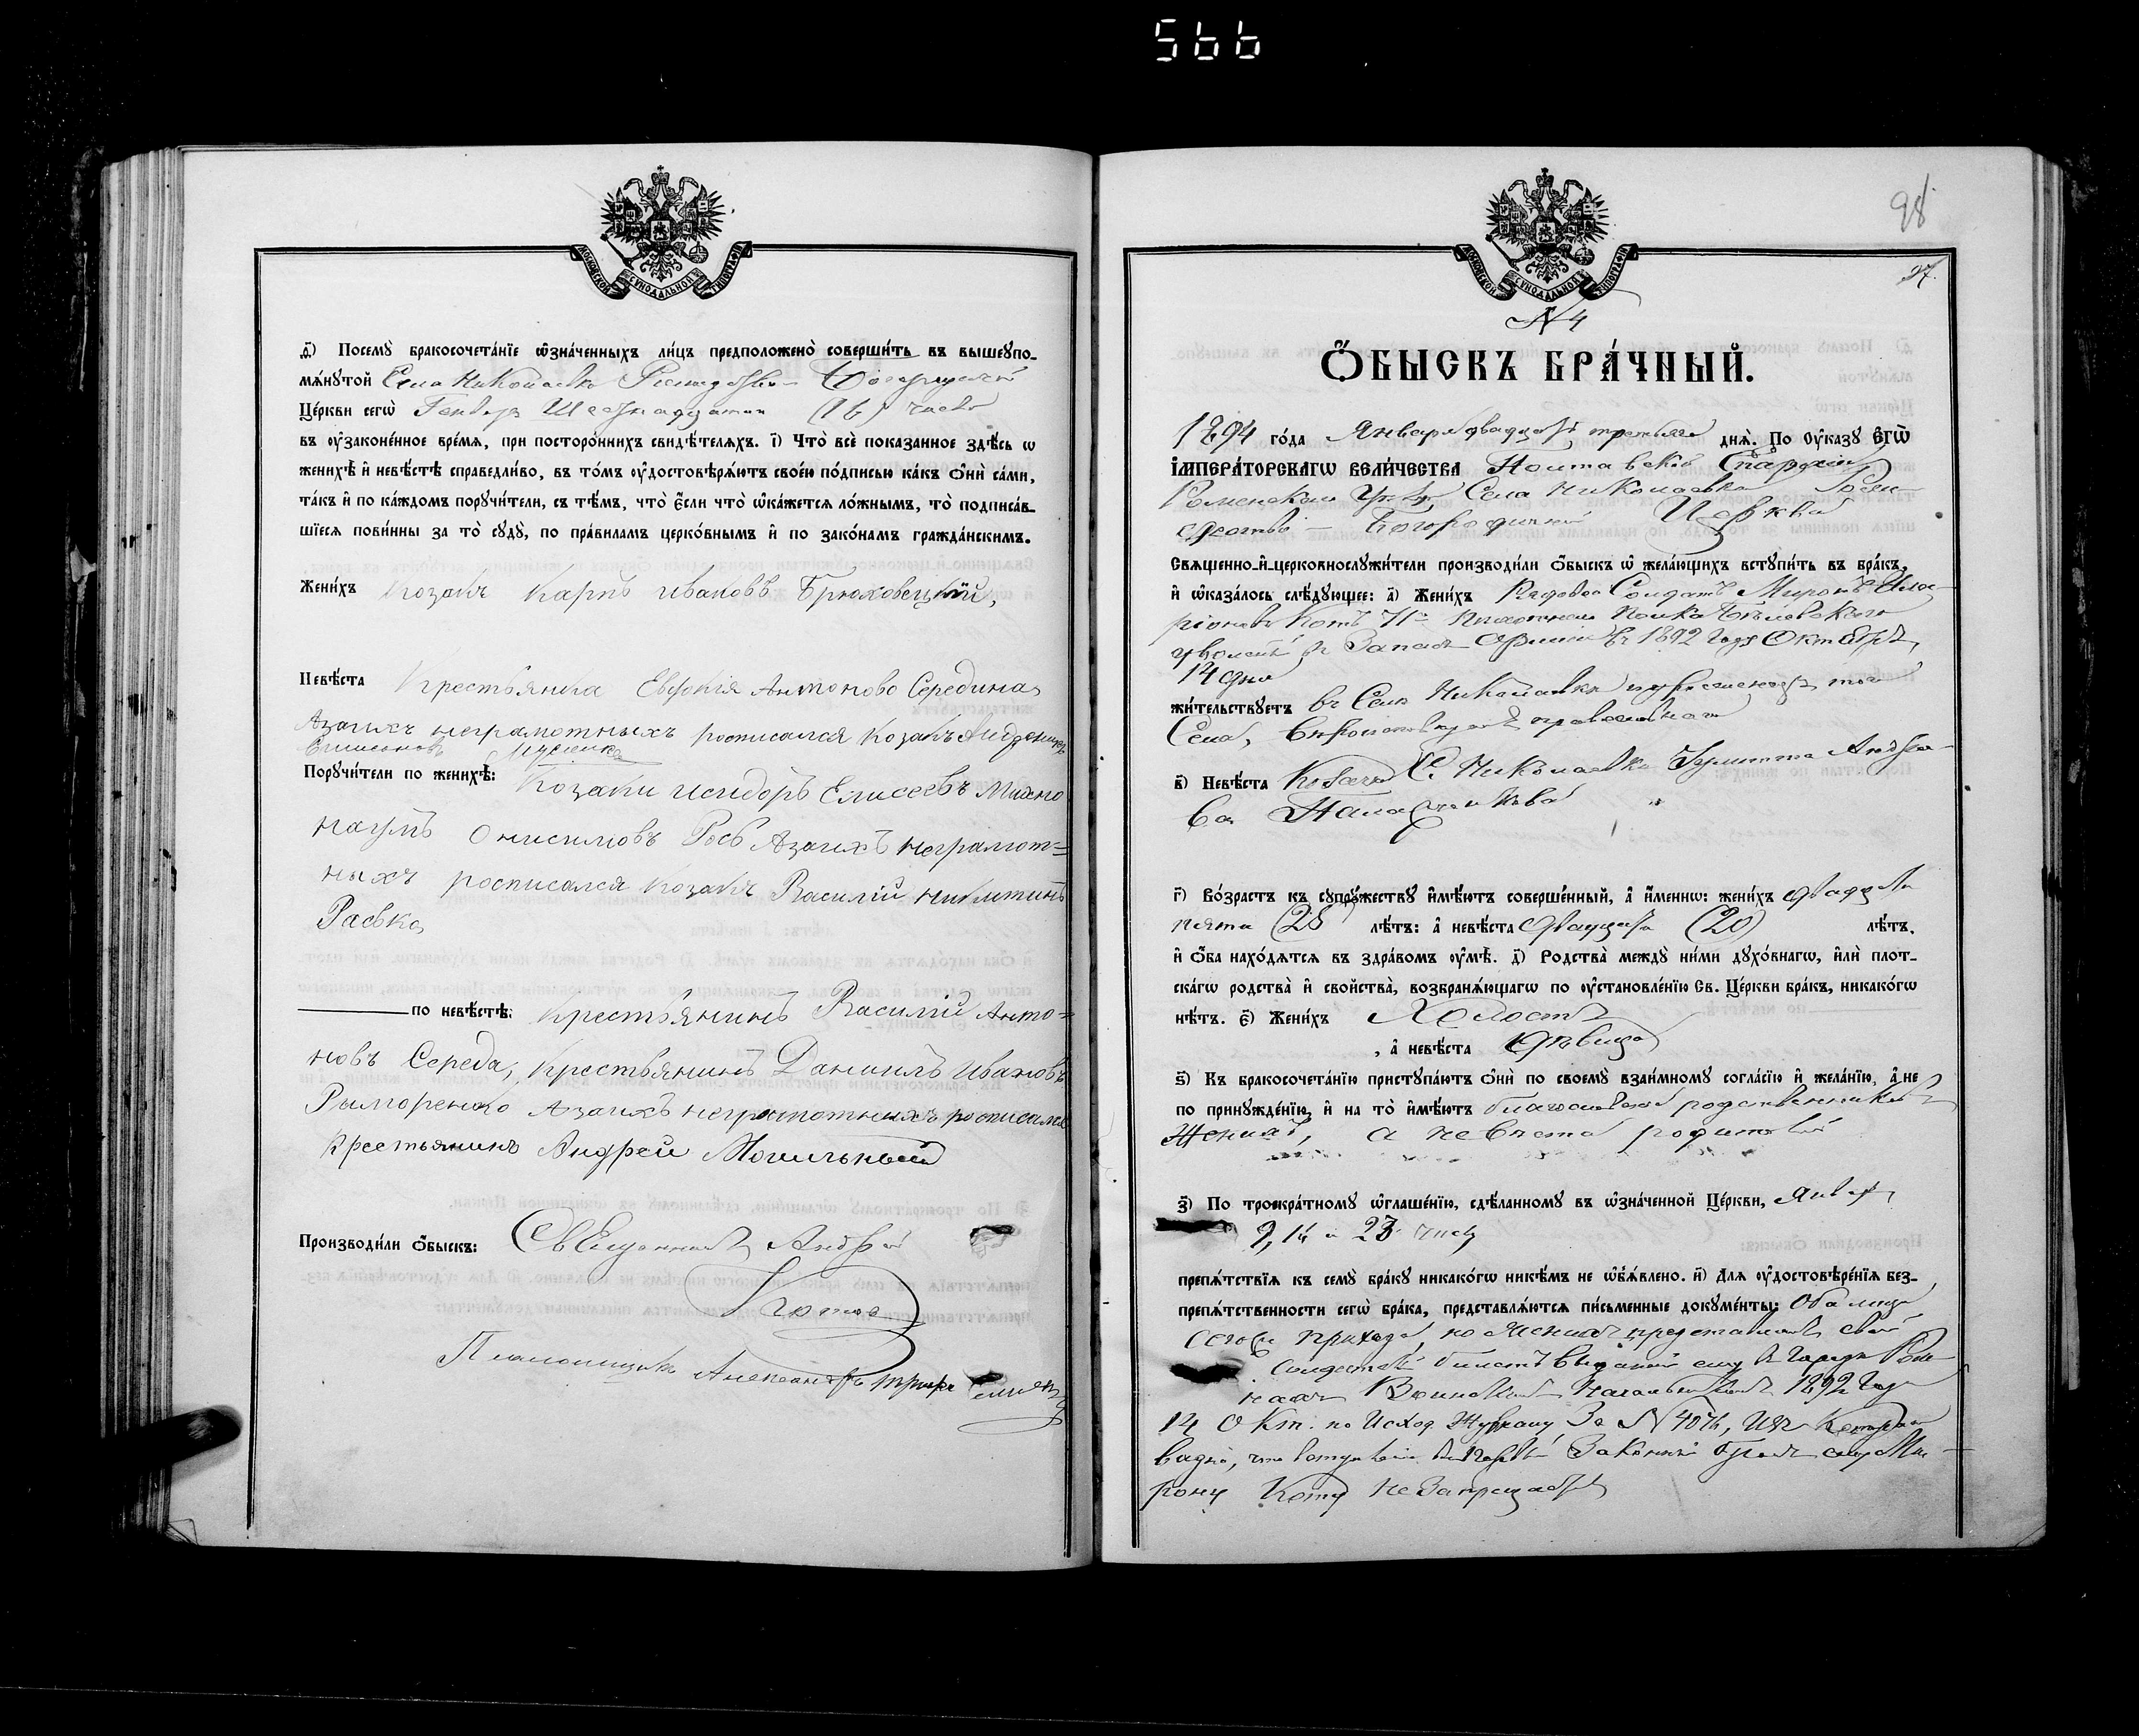 566
МОСКОВСКОЙ СѴНОДАЛЬНОЙ ТИПОГРАФІИ
д҃і) Посемꙋ̀ бракосочета́нїе ѡ҆зна́ченныхъ ли́цъ предположено̀ соверши́ть въ вышеꙋпо-
мѧ́нꙋтой Села Николаевки Рождество- Богородичной
Це́ркви сегѡ̀ Генваря Шестнадцатаго (16) числа
въ ᲂу҆зако́ненное вре́мѧ, при посторо́ннихъ свидѣ́телѧхъ. і҃) Что̀ всѐ показанное здѣ́сь ѡ
женихѣ̀ и҆ невѣ́стѣ справедли́во, въ то́мъ ᲂу҆достовѣрѧ́ютъ свое́ю по́дписью ка́къ ѻ҆нѝ са́ми,
та́къ и҆ по ка́ждомъ порꙋчи́тели, съ тѣ́мъ, что̀ є҆́сли что̀ ѡ҆ка́жетсѧ ло́жнымъ, то̀ подписа́в-
шїесѧ пови́нны за то̀ сꙋдꙋ̀, по пра́виламъ церко́внымъ и҆ по зако́намъ гражда́нскимъ.
Жени́хъ Козакъ Карпъ Ивановъ Брюховецкій,
Невѣ́ста Крестьянка Евдокія Антонова Середина,
Азаихъ неграмотныхъ росписался Козакъ
Порꙋчи́тели по женихѣ̀: Козаки Исидоръ Елисеевъ Михно
Наумъ Онисимовъ Рось Азаихъ неграмот=
ныхъ росписался козакъ Василій Никитинъ
Раевка
по невѣ́стѣ: Крестьянинъ Василій Анто=
новъ Середа, Крестьянинъ Даниилъ Ивановъ
Рыморенко Азаихъ неграмотныхъ росписался
Крестьянинъ Андрей Могильный
Производи́ли ѻ҆́быскъ: Священникъ Андрей
Псаломщикъ Александръ
98
97.
МОСКОВСКОЙ СѴНОДАЛЬНОЙ ТИПОГРАФІИ
N 4
Ѻ҆́БЫСКЪ БРА́ЧНЫЙ.
1894 го́да Января двадцать третьяго днѧ̀. По ᲂу҆ка́зꙋ Є҆ГѠ̀
І҆МПЕРА́ТОРСКАГѠ ВЕЛИ́ЧЕСТВА Полтавской Епархіи
Роменскаго Уѣзда Села Николаевки Рож-
дество- Богородичной Церкви
Свѧщенно-и҆-церковнослꙋжи́тели производи́ли ѻ҆́быскъ ѡ҆ жела́ющихъ встꙋпи́ть въ бра́къ,
и҆ ѡ҆каза́лось слѣ́дꙋющее: а҃) Жени́хъ Рядовой Солдатъ Миронъ Ила-
ріоновъ Котъ 71го Пѣхотнаго Полка Бѣлевскаго
уволенъ въ Запасъ Арміи въ 1892 года Октября
14 дня
жи́тельствꙋетъ въ Селѣ Николаевки
Села, вѣроисповѣданія православнаго
в҃) Невѣ́ста Козачка С. Николаевки Андре-
ва
г҃) Во́зрастъ къ сꙋпрꙋ́жествꙋ и҆мѣ́ютъ соверше́нный, а҆ и҆́меннѡ: жени́хъ двадцать
пять (25) лѣ́тъ: а҆ невѣ́ста двадцать (20) лѣ́тъ,
и҆ ѻ҆́ба нахо́дѧтсѧ въ здра́вомъ ᲂу҆мѣ̀. д҃) Родства̀ междꙋ̀ ни́ми дꙋхо́внагѡ, и҆лѝ плот-
ска́гѡ родства̀ и҆ сво́йства, возбранѧ́ющагѡ по ᲂу҆становле́нїю Св. Це́ркви бра́къ, никако́гѡ
нѣ́тъ. є҃) Жени́хъ Холостъ
, а҆ невѣ́ста дѣвица
ѕ҃) Къ бракосочета́нїю пристꙋпа́ютъ ѻ҆нѝ по своемꙋ̀ взаи́мномꙋ согла́сїю и҆ жела́нїю, а҆ не
по принꙋжде́нїю, и҆ на то̀ и҆мѣ́ютъ благословеніе родственниковъ
Женихъ, а невѣста родителей
з҃) По троекра́тномꙋ ѡ҆глаше́нїю, сдѣ́ланномꙋ въ ѡ҆зна́ченной Це́ркви, Января
9, 16 и 23 числа
препѧ́тствїѧ къ семꙋ̀ бра́кꙋ никако́гѡ никѣ́мъ не ѡ҆б̾ѧ́влено. и҃) Длѧ ᲂу҆достовѣре́нїѧ без-
препѧ́тственности сегѡ̀ бра́ка, представлѧ́ютсѧ пи́сьменные докꙋме́нты: Оба лица
сего прихода но женихъ представилъ свой
солдатскій билетъ выданный ему въ городѣ Ром-
нахъ Воинскимъ Начальникомъ 1892 года
14 Окт. по Исход. Журналу За N 4076, Изъ Котораго
видно, что вступленіе въ первый Законный бракъ ему Ми-
рону Коту не Запрещается